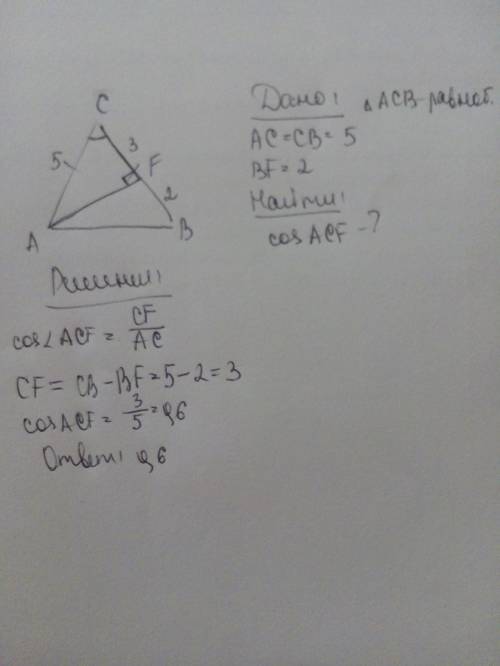 C
5
3
F
2
A
B
Дано: △ ACB-равноб.
AC=CB=5
BF=2
Найти:
cos ACF-?
Решение:
cos∠ ACF = CF/AC
CF= CB-BF=5-2=3
cos ACF= 3/5 = 0,6
Ответ: 0,6